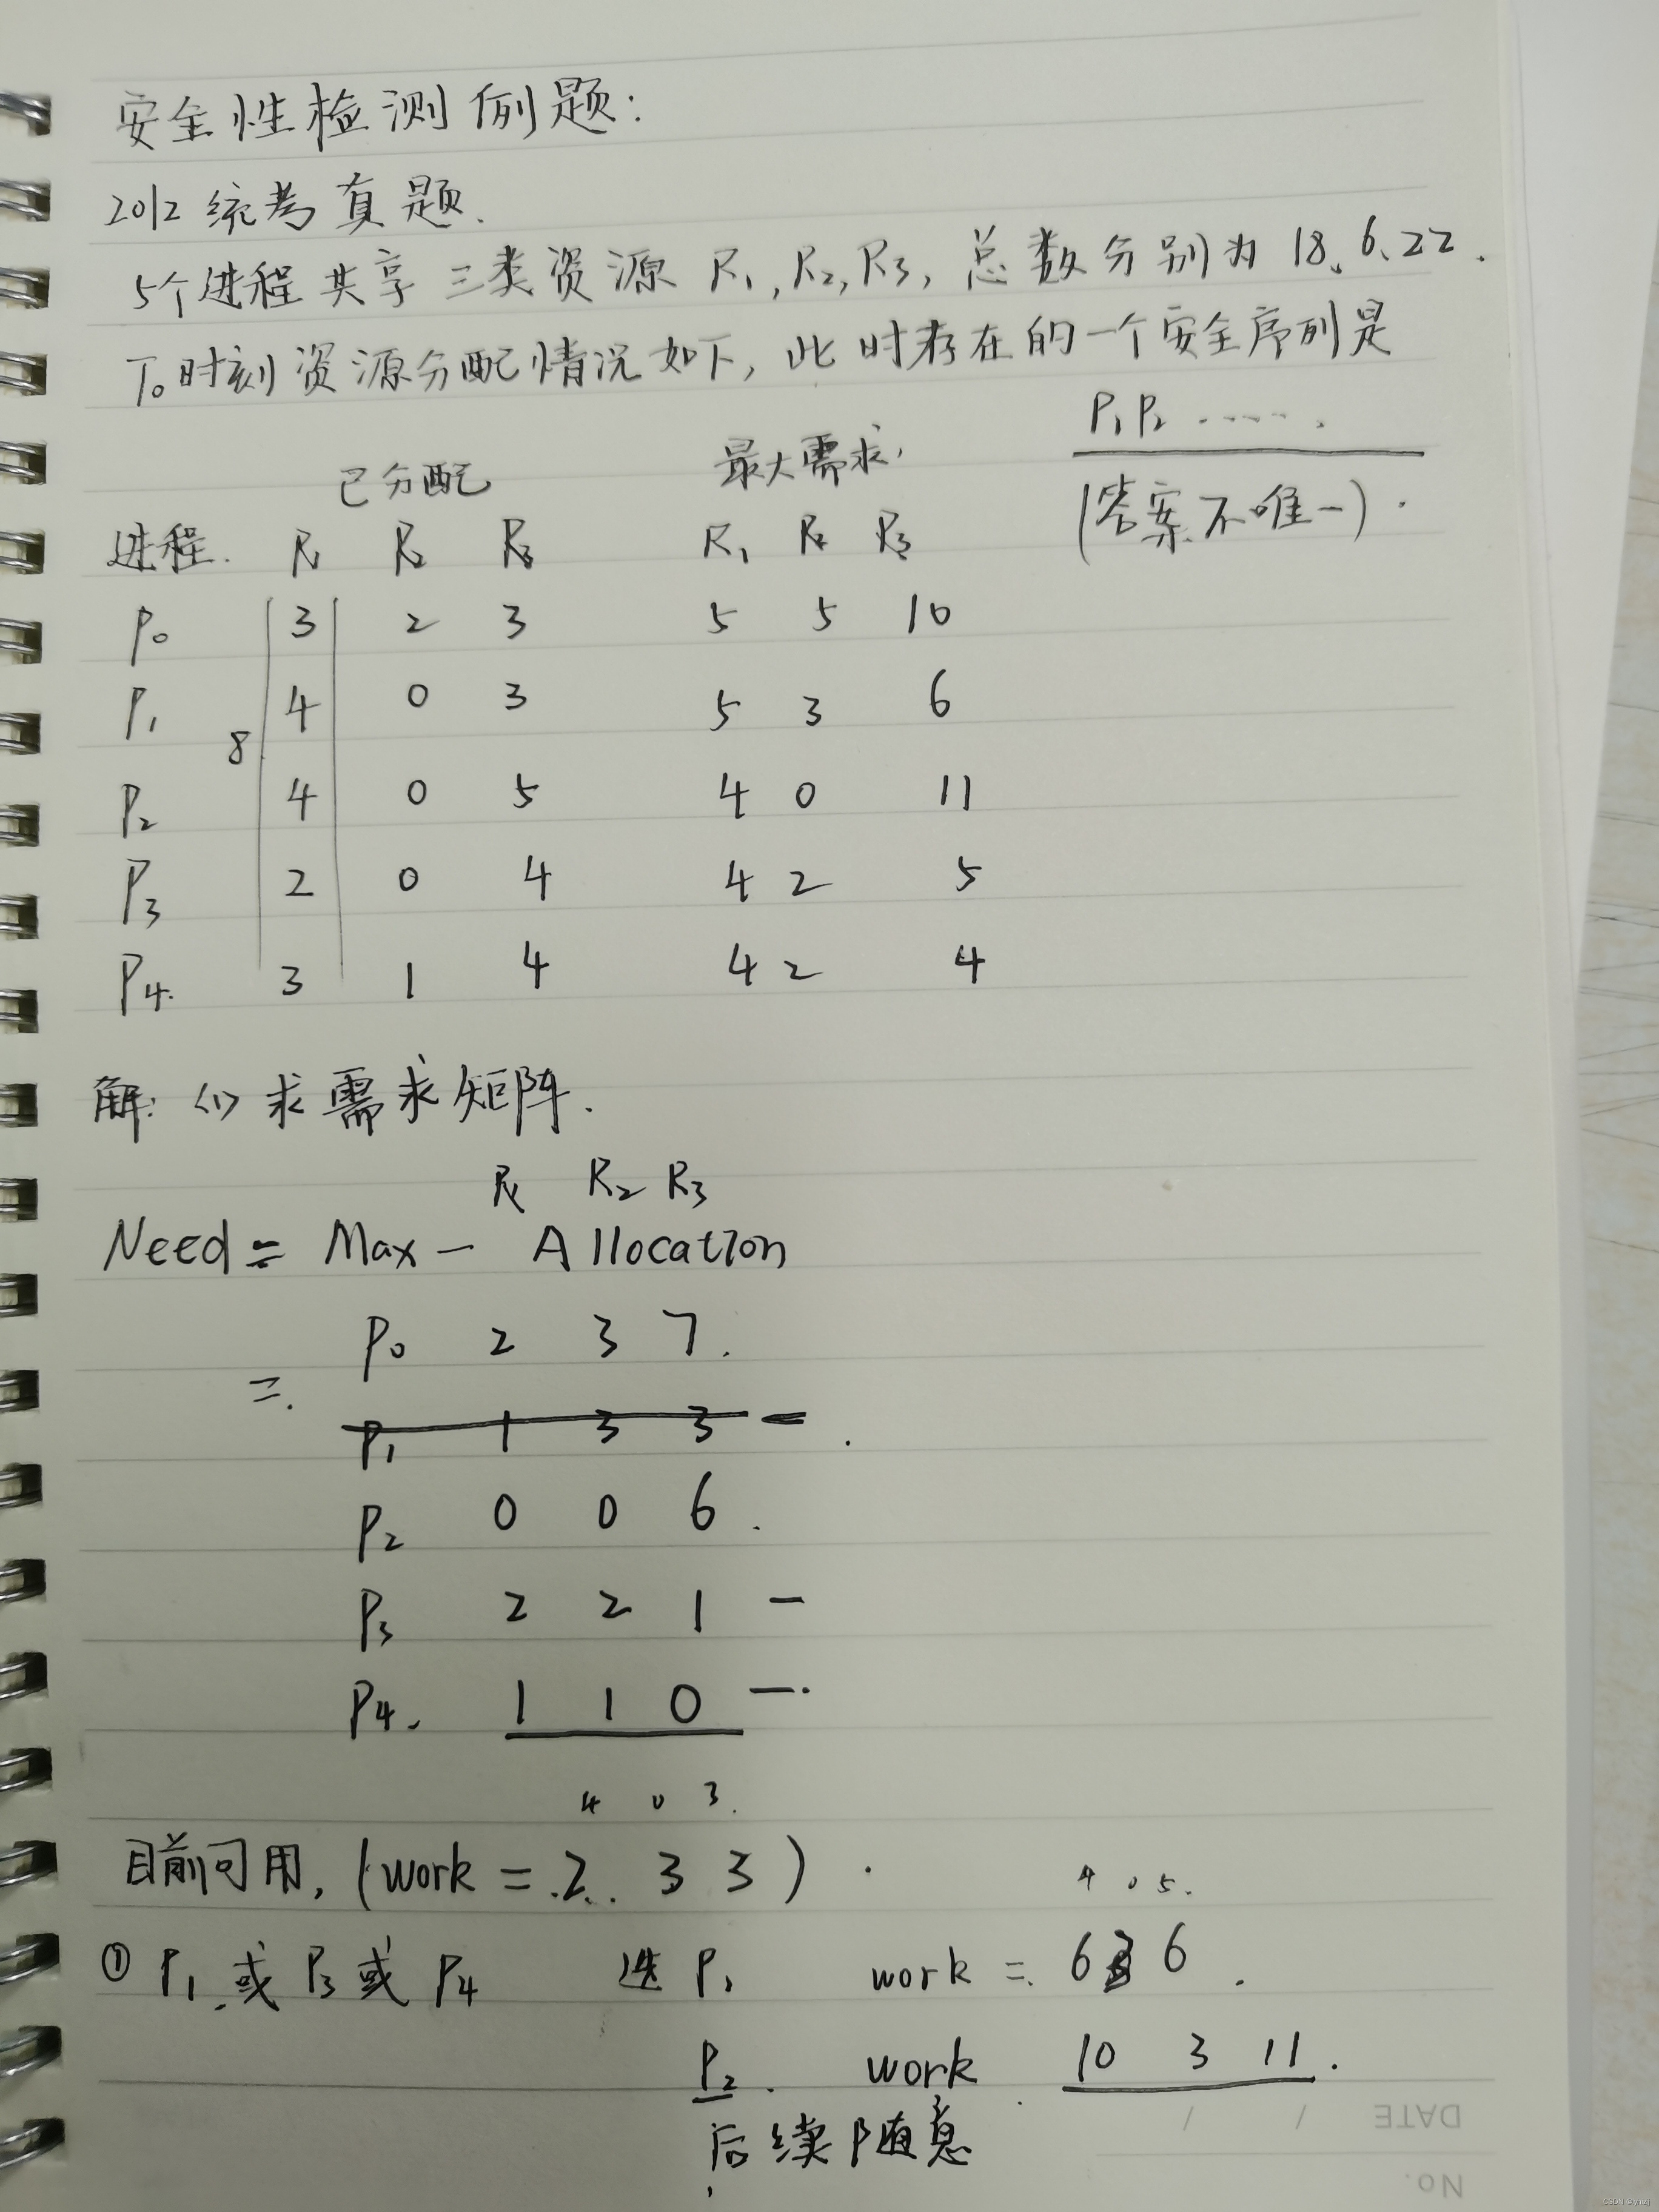 安全性检测例题:
2012统考真题.
5个进程共享三类资源 R1,R2,R3, 总数分别为18、6、22.
T0时刻资源分配情况如下, 此时存在的一个安全序列是
P1P2 ......
(答案不唯一).
已分配 最大需求
进程. R1 R2 R3 R1 R2 R3
P0 3 2 3 5 5 10
P1 4 0 3 5 3 6
8
P2 4 0 5 4 0 11
P3 2 0 4 4 2 5
P4. 3 1 4 4 2 4
解: (1) 求需求矩阵.
R1 R2 R3
Need = Max - Allocation
P0 2 3 7.
=.
P1 1 3 3 - .
P2 0 0 6 .
P3 2 2 1 -
P4. 1 1 0 -.
4 0 3.
目前可用, (work = 2 3 3) .
4 0 5.
① P1 或 P3 或 P4 选 P1 work = 6 3 6 .
P2. work 10 3 11.
后续随意
DATE / /
No.